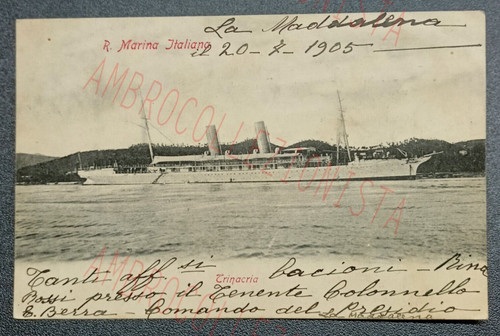 La Maddalena
R. Marina Italiana
il 20-7-1905
AMBROCOLLEZIONISTA
AMBROCOLLEZIONISTA
Trinacria
Tanti aff.si bacioni - Pina
Bozzi presso il Tenente Colonnello
E. Berra - Comando del Presidio
La Maddalena